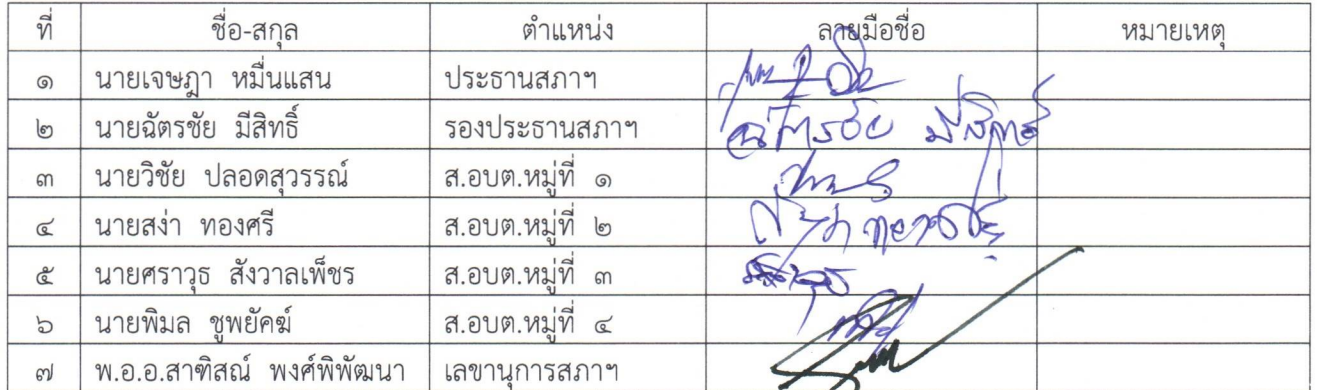 ที่ ชื่อ-สกุล ตำแหน่ง ลายมือชื่อ หมายเหตุ
๑ นายเจษฎา หมื่นแสน ประธานสภาฯ
๒ นายฉัตรชัย มีสิทธิ์ รองประธานสภาฯ ฉัตรชัย มีสิทธิ์
๓ นายวิชัย ปลอดสุวรรณ์ ส.อบต.หมู่ที่ ๑
๔ นายสง่า ทองศรี ส.อบต.หมู่ที่ ๒ สง่า ทองศรี
๕ นายศราวุธ สังวาลเพ็ชร ส.อบต.หมู่ที่ ๓
๖ นายพิมล ชูพยัคฆ์ ส.อบต.หมู่ที่ ๔
๗ พ.อ.อ.สาฑิสณ์ พงศ์พิพัฒนา เลขานุการสภาฯ